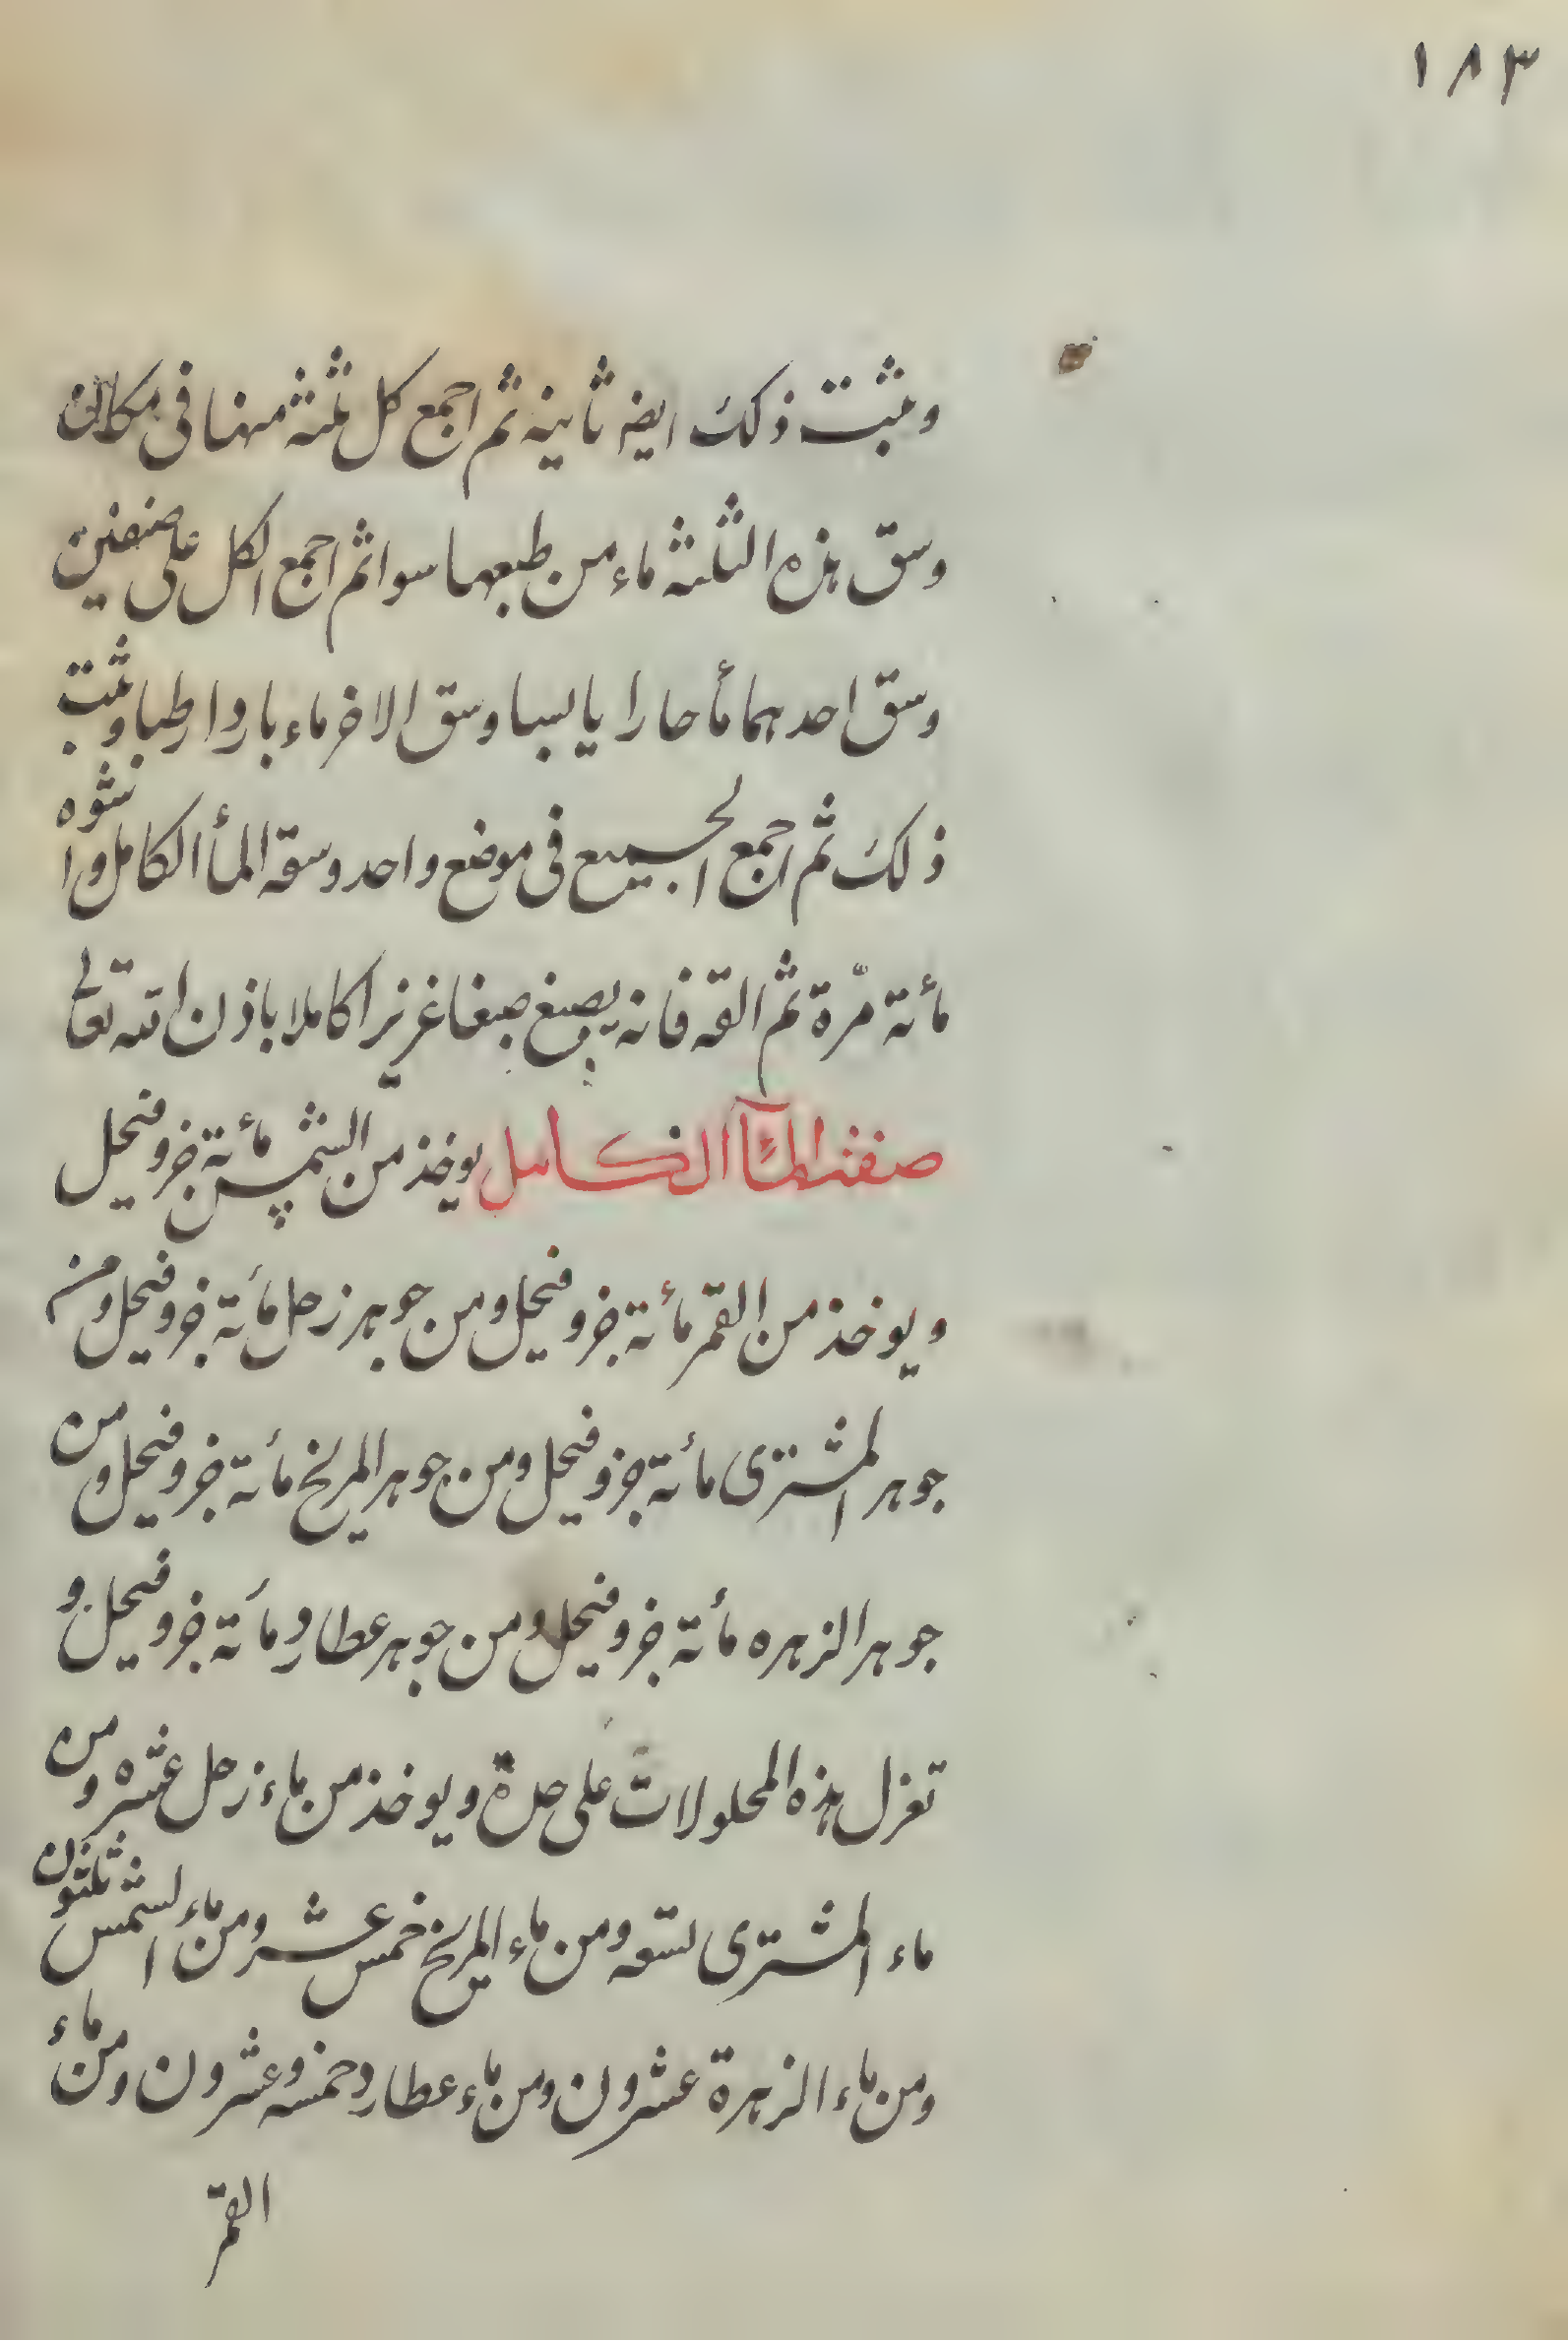 ١٨٣
وثبت ذلك ايضه ثانية ثم اجمع كل ثلثة منها فى مكان
وسق هذه الثلثة ماء من طبعها سوا ثم اجمع الكل على صنفين
وسق احدهما مأ حارا يابسا وسق الاخر ماء باردا رطبا وثبت
ذلك ثم اجمع الجميع فى موضع واحد وسقه المأ الكامل واشوه
مأته مرّة ثم القه فانه يصبغ صبغا غزيرا كاملا باذن الله تعالى
صفة المأ الكامل يوخذ من الشمس مأته جزو فيحل
ويوخذ من القمر مأته جزو فيحل ومن جوهر زحل مأته جزو فيحل ومن
جوهر المشترى مأته جزو فيحل ومن جوهر المريخ مأته جزو فيحل ومن
جوهر الزهره مأته جزو فيحل ومن جوهر عطارد مأته جزو فيحل و
تعزل هذه المحلولات على حدة ويوخذ من ماء زحل عشره ومن
ماء المشترى تسعه ومن ماء المريخ خمس عشر ومن ماء الشمس ثلثون
ومن ماء الزهرة عشرون ومن ماء عطارد خمسه وعشرون ومن ماء
القمر